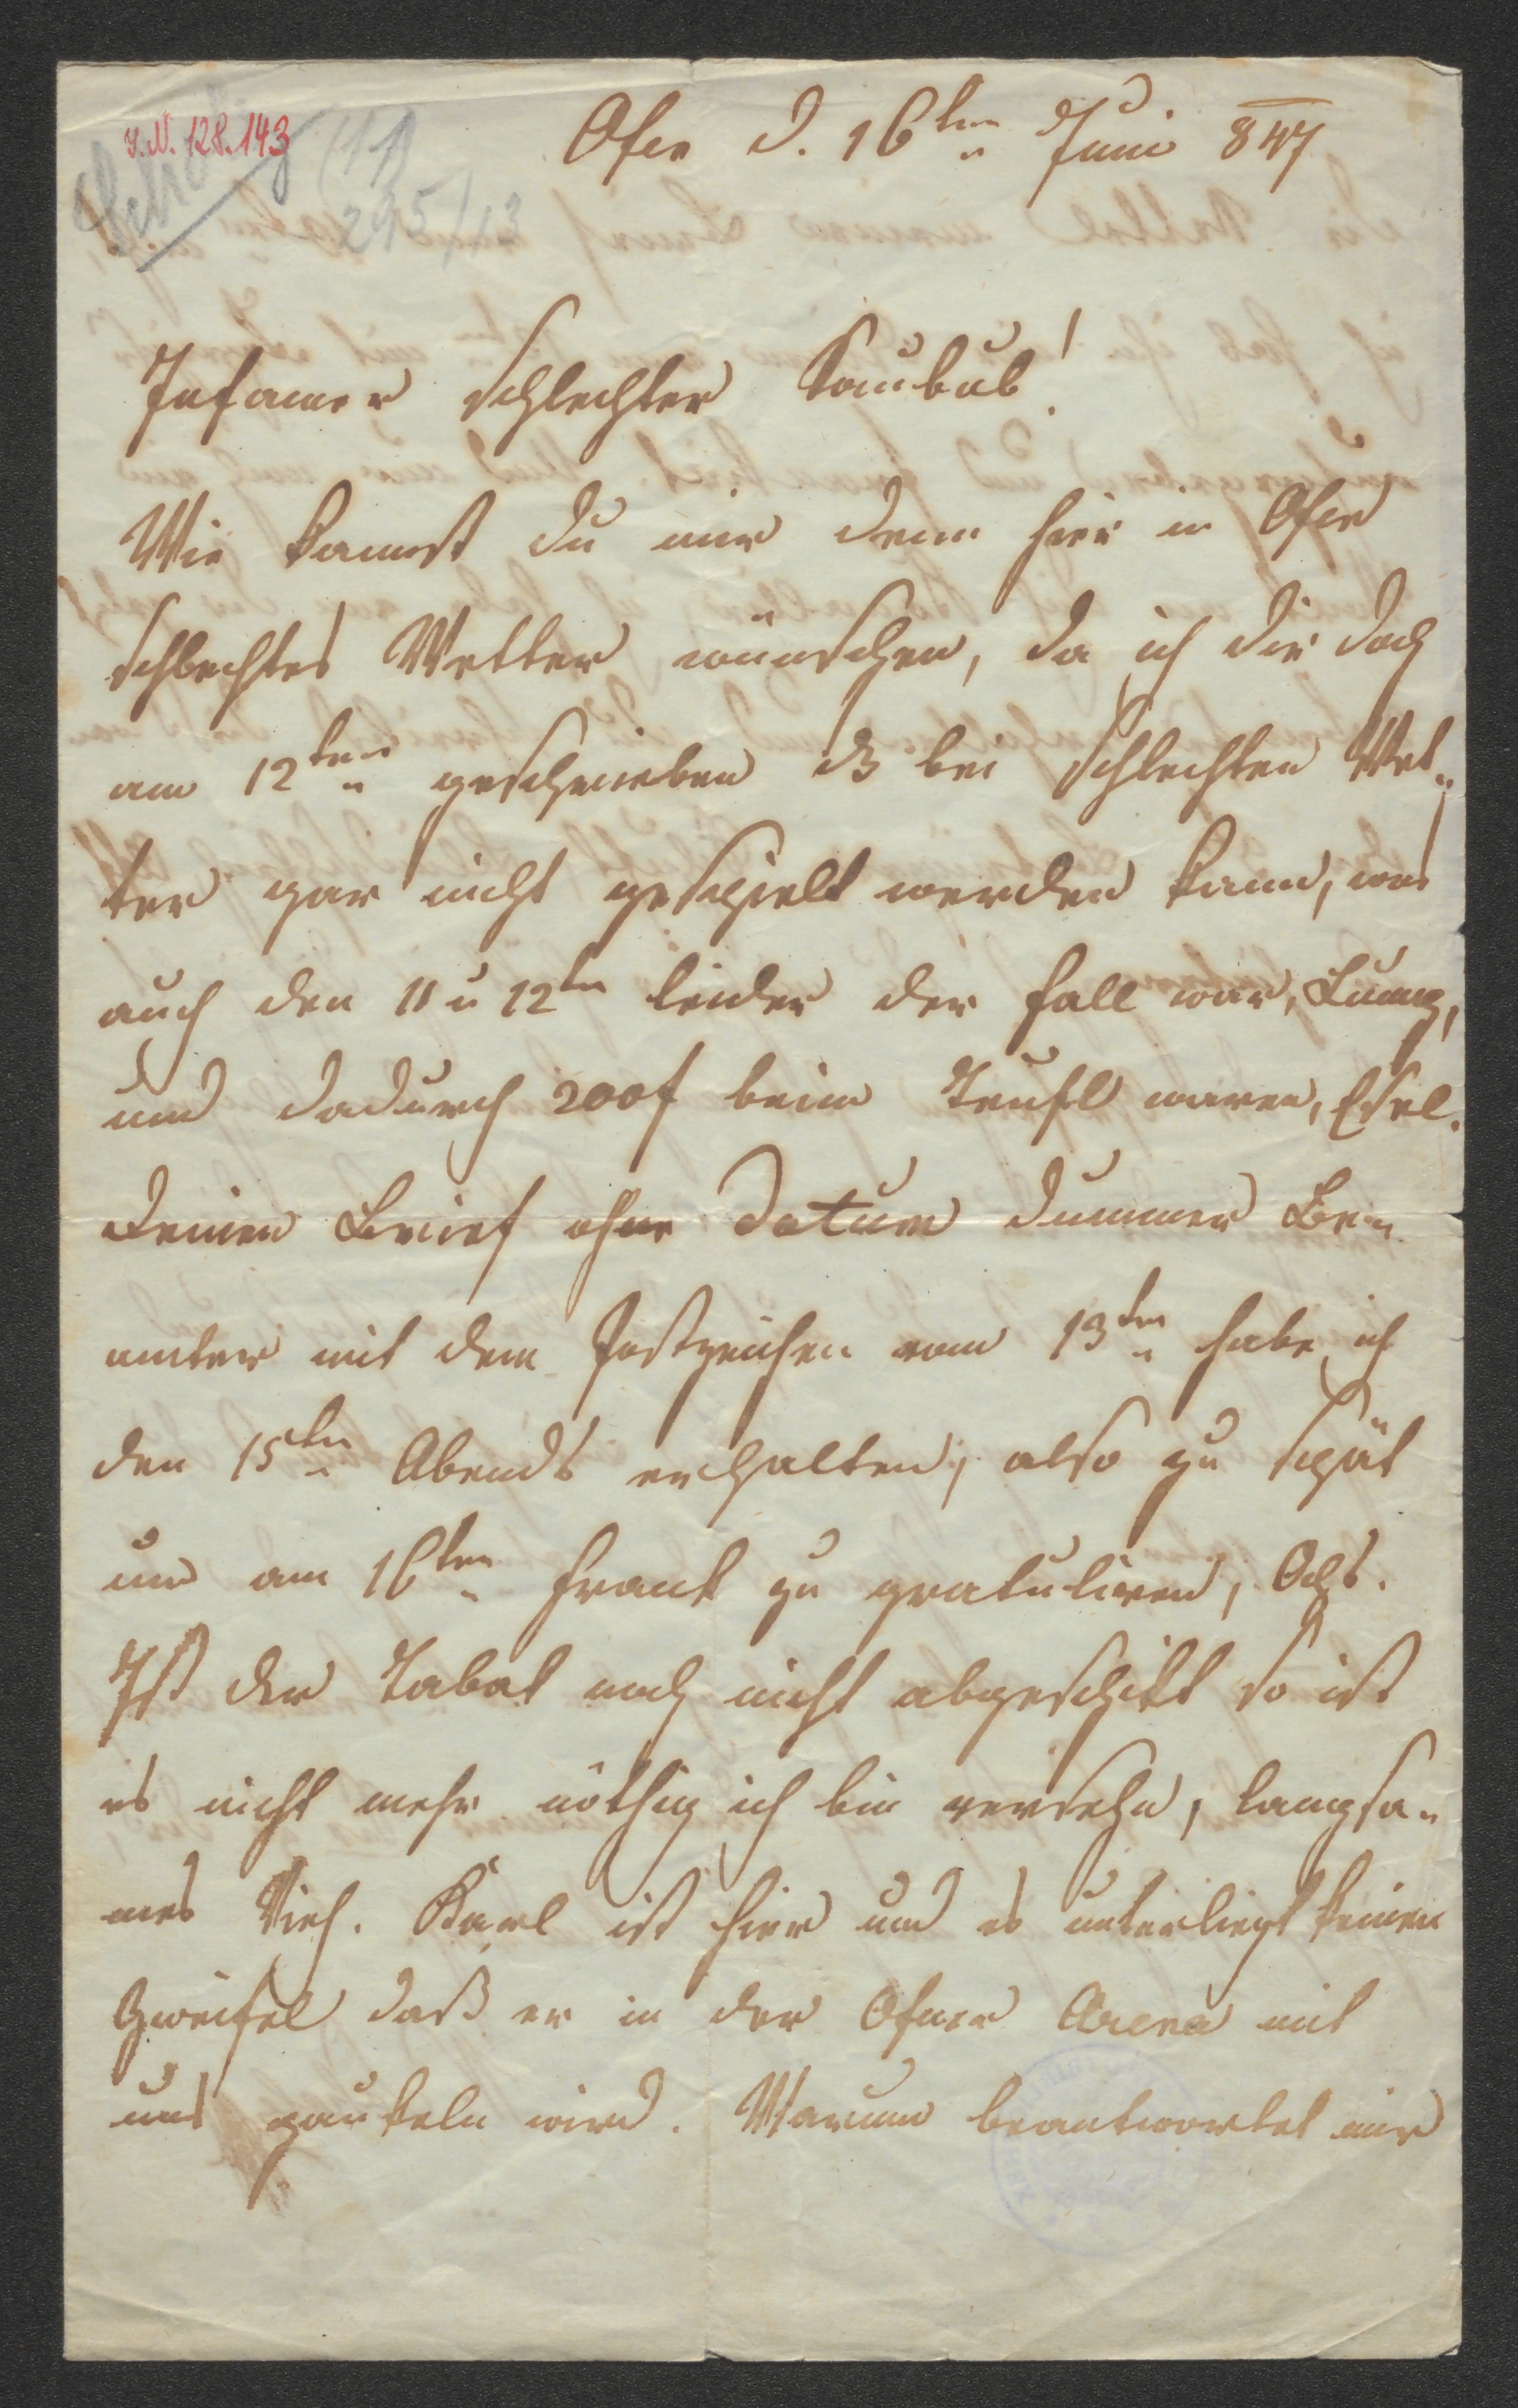 I.N. 128.143
(11)
295/13
Ofen d. 16ten Juni 847
Infamer schlechter Saubub!
Wie kannst du mir denn hier in Ofen
schlechtes Wetter wünschen, da ich dir doch
am 12ten geschrieben dß bei schlechten Wet-
ter gar nicht gespielt werden kann, was
auch den 11 u 12ten leider der Fall war, Lump,
und dadurch 200f beim Teufel waren, Esel.
Deinen Brief ohne Datum dummer Be-
amter mit dem Postzeichen vom 13ten habe ich
den 15ten Abends erhalten, also zu spät
um am 16ten Frank zu gratuliren, Ochs.
Ist der Tabak noch nicht abgeschikt so ist
es nicht mehr nöthig ich bin versehn, langsa-
mes Vieh. Karl ist hier und es unterliegt keinen
Zweifel daß er in der Ofner Arena mit
uns gaukeln wird. Warum beantwortet mir